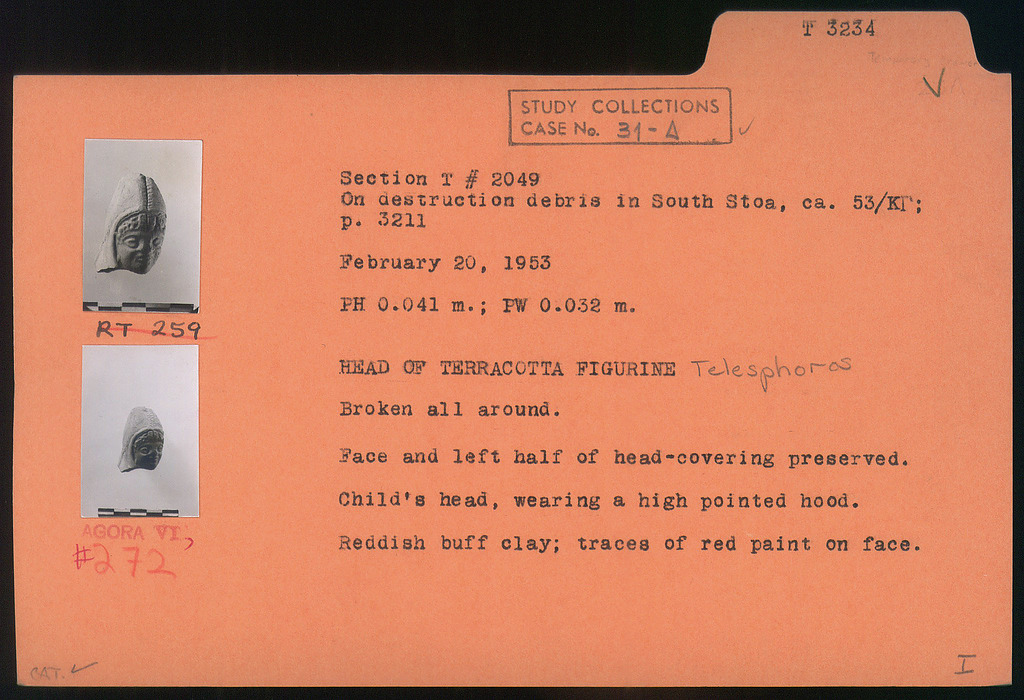 T 3234
STUDY COLLECTIONS
CASE No. 31-A
Section T # 2049
On destruction debris in South Stoa, ca. 53/ΚΓ;
p. 3211
February 20, 1953
PH 0.041 m.; PW 0.032 m.
RT 259
HEAD OF TERRACOTTA FIGURINE Telesphoros
Broken all around.
Face and left half of head-covering preserved.
Child's head, wearing a high pointed hood.
AGORA VI,
#272
Reddish buff clay; traces of red paint on face.
CAT. ✓
I